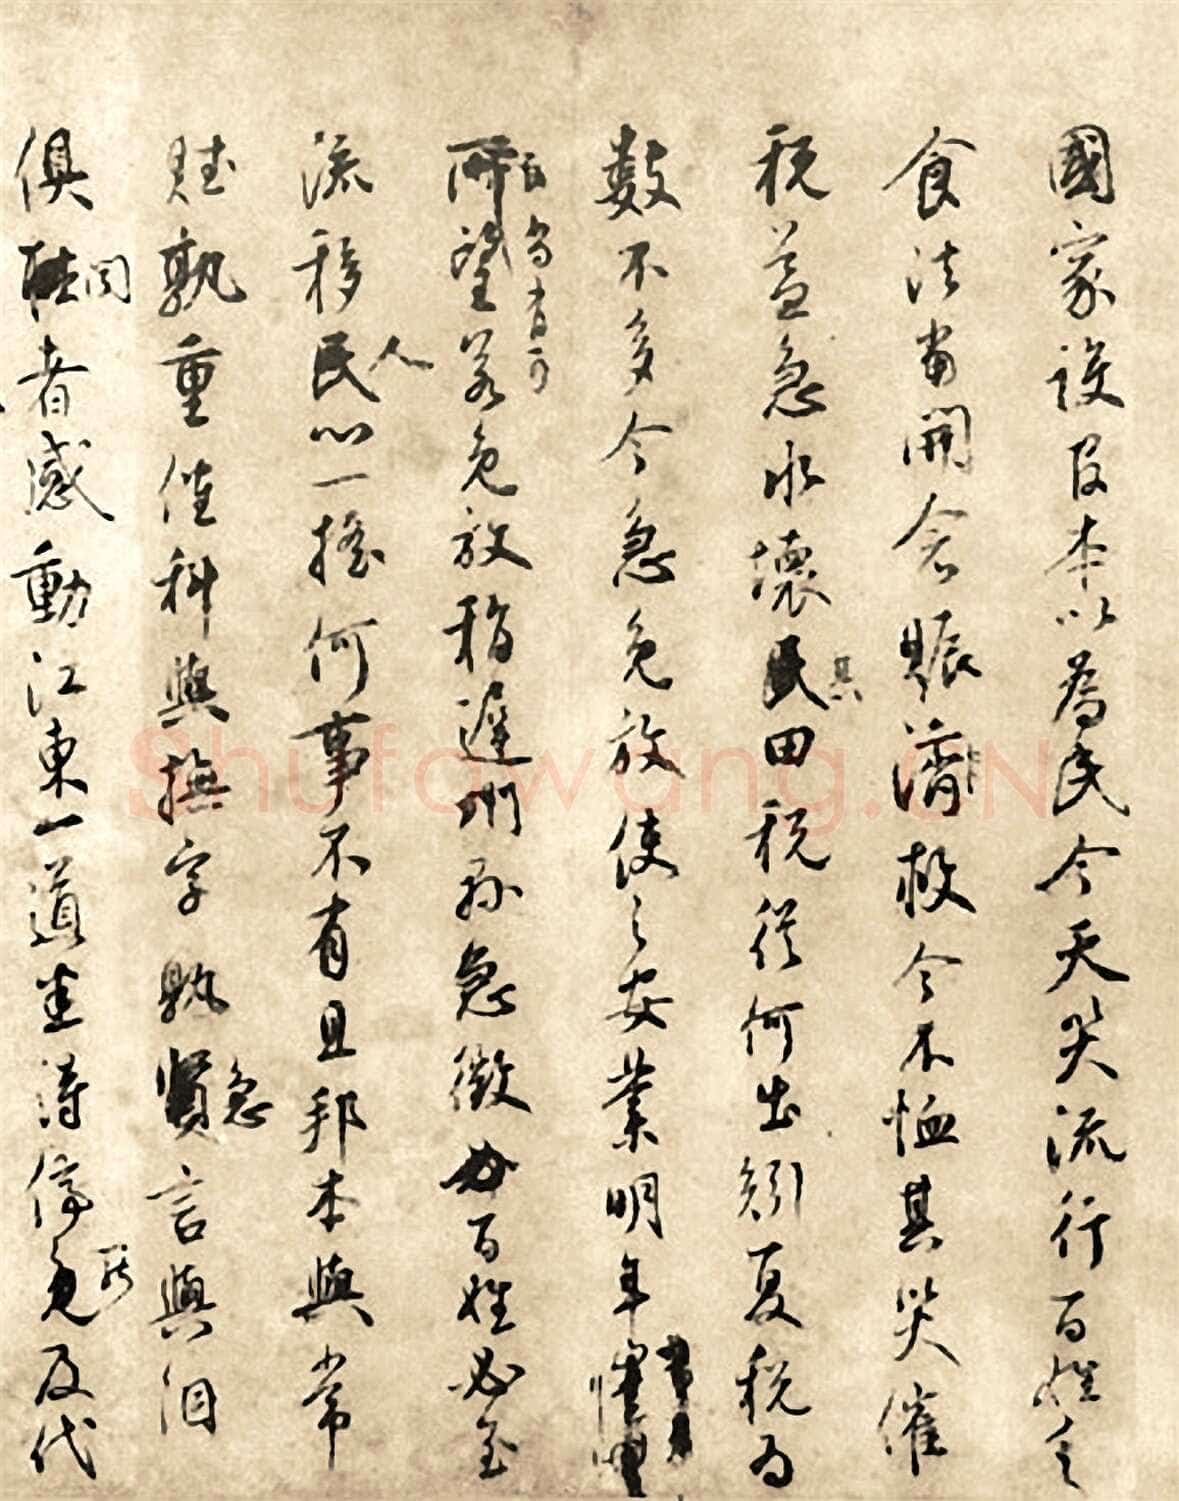 國家設官本以為民今天災流行百姓乏
食法當開倉賑濟救今不恤其災催
稅益急水壞民其田稅從何出矧夏稅為
數不多今急免放使之安業明年
尚有可
所望若免放稍遲州縣急徵百姓必至
流移民人心一搖何事不有且邦本與常
賦孰重催科與撫字孰急言與泪
俱聞者感動江東一道盡得停免及代
Shufawang.CN